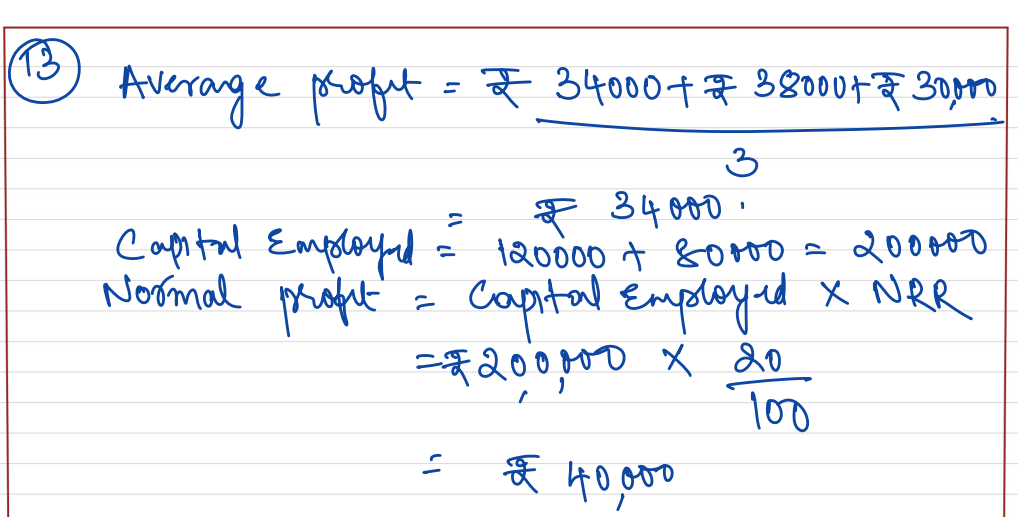 13
Average profit = ₹ 34000 + ₹ 38000 + ₹ 30,000
3
= ₹ 34000.
Capital Employed = 120000 + 80000 = 200000
Normal profit = Capital Employed × NRR
= ₹ 200,000 × 20
100
= ₹ 40,000